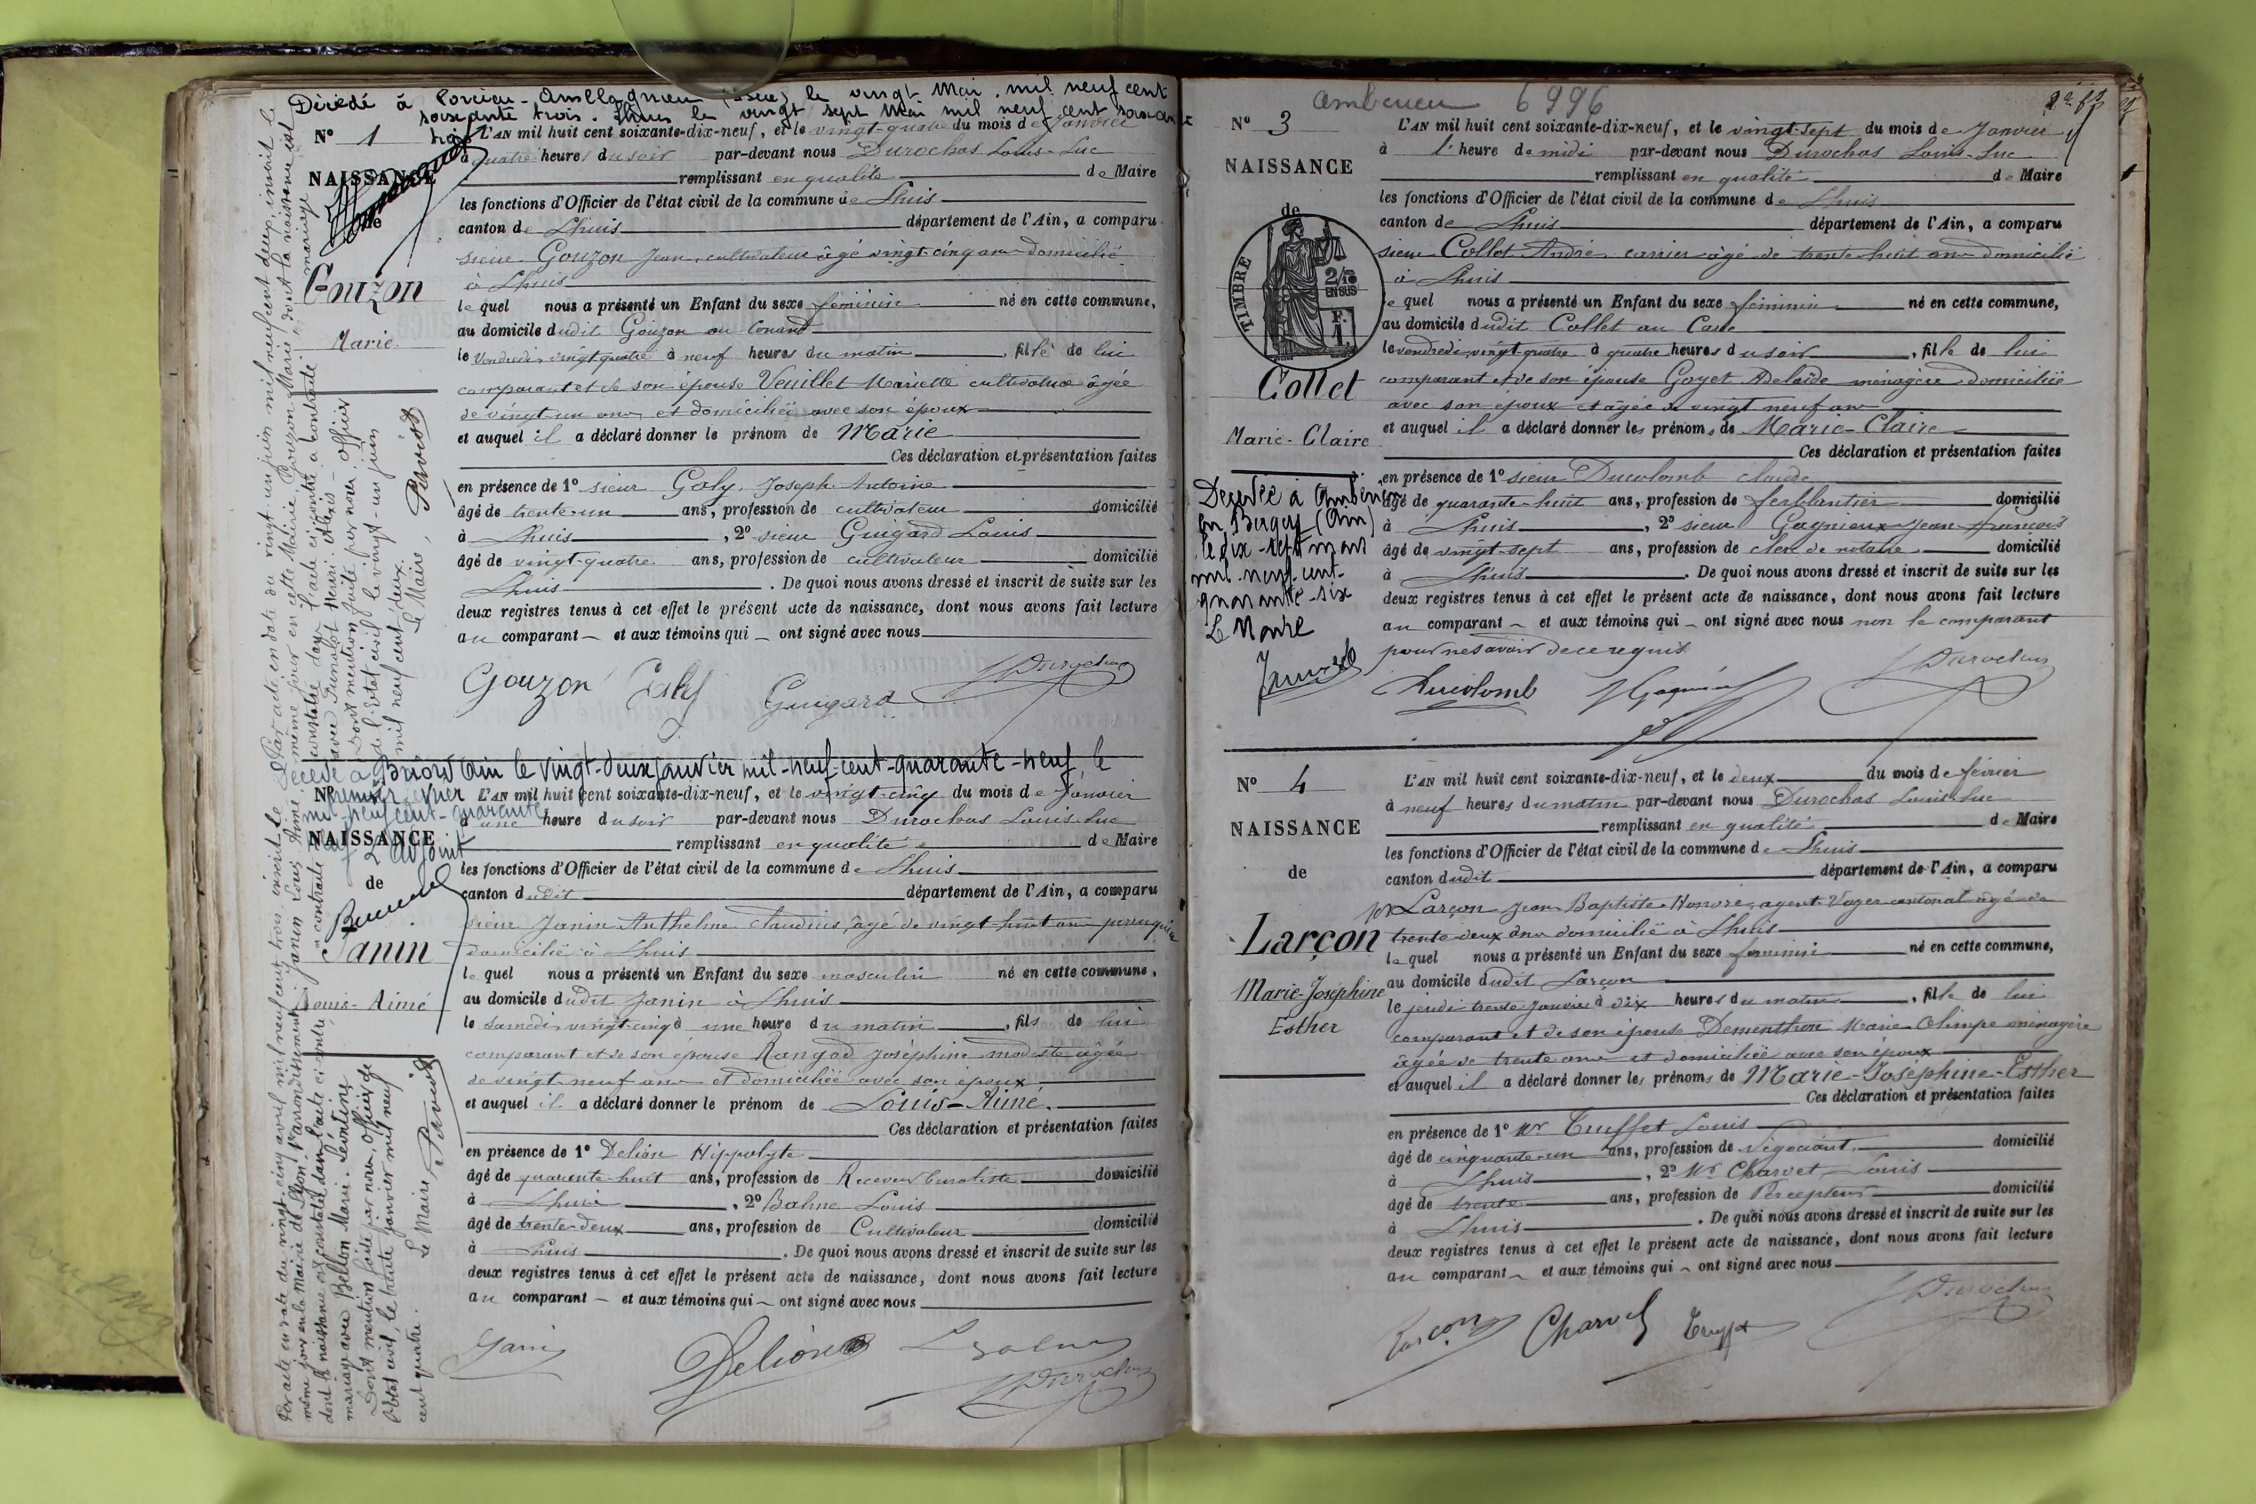 Décédé à Porcieu-Amblagnieu (Isère) le vingt Mai mil neuf cent
soixante trois. Lhuis le vingt sept Mai mil neuf cent soixante
trois
N° 1
NAISSANCE
de
Gouzon
Marie
L'AN mil huit cent soixante-dix-neuf, et le vingt-quatre du mois de Janvier
à quatre heures du soir par-devant nous Durochas Louis-Luc
remplissant en qualité de Maire
les fonctions d'Officier de l'état civil de la commune de Lhuis
canton de Lhuis département de l'Ain, a comparu
sieur Gouzon Jean, cultivateur âgé vingt-cinq ans domicilié
à Lhuis
lequel nous a présenté un Enfant du sexe féminin né en cette commune,
au domicile dudit Gouzon au Conand
le Vendredi vingt quatre à neuf heures du matin, fille de lui
comparant et de son épouse Veuillet Mariette cultivatrice âgée
de vingt un ans et domiciliée avec son époux
et auquel il a déclaré donner le prénom de Marie
Ces déclaration et présentation faites
en présence de 1° sieur Goly Joseph Antoine
âgé de trente-un ans, profession de cultivateur domicilié
à Lhuis, 2° sieur Guigard Louis
âgé de vingt-quatre ans, profession de cultivateur domicilié
Lhuis. De quoi nous avons dressé et inscrit de suite sur les
deux registres tenus à cet effet le présent acte de naissance, dont nous avons fait lecture
au comparant et aux témoins qui ont signé avec nous
Gouzon Goly Guigard Durochas
Par acte en date du vingt-un juin mil neuf cent deux, inscrit le
même jour en cette Mairie, Gouzon Marie, dont la naissance est
constatée dans l'acte ci-contre a contracté mariage
avec Henri Alexis
Dont mention faite par nous Officier
de l'Etat civil le vingt-un juin
mil neuf cent deux.
Le Maire,
Décédé à Briord Ain le vingt-deux janvier mil-neuf-cent-quarante-neuf, le
premier février
mil-neuf-cent-quarante
neuf L'Adjoint
N°
NAISSANCE
de
Janin
Louis-Aimé
L'AN mil huit cent soixante-dix-neuf, et le vingt-cinq du mois de Janvier
à une heure du soir par-devant nous Durochas Louis-Luc
remplissant en qualité de Maire
les fonctions d'Officier de l'état civil de la commune de Lhuis
canton dudit département de l'Ain, a comparu
sieur Janin Anthelme Claudius, âgé de vingt huit ans perruquier
domicilié à Lhuis
lequel nous a présenté un Enfant du sexe masculin né en cette commune,
au domicile dudit Janin à Lhuis
le samedi vingt-cinq à une heure du matin, fils de lui
comparant et de son épouse Rangod Joséphine modiste âgée
de vingt neuf ans et domiciliée avec son époux
et auquel il a déclaré donner le prénom de Louis-Aimé.
Ces déclaration et présentation faites
en présence de 1° Delion Hippolyte
âgé de quarante-huit ans, profession de Receveur buraliste domicilié
à Lhuis, 2° Bahne Louis
âgé de trente-deux ans, profession de Cultivateur domicilié
à Lhuis. De quoi nous avons dressé et inscrit de suite sur les
deux registres tenus à cet effet le présent acte de naissance, dont nous avons fait lecture
au comparant et aux témoins qui ont signé avec nous
Janin Delion Durochas
Par acte en date du vingt-cinq avril mil neuf cent trois, inscrit le
même jour en la Mairie de Lyon, arrondissement, Janin Louis Aimé
dont la naissance est constatée dans l'acte ci-contre, a contracté
mariage avec Bellon Marie Léontine
Dont mention faite par nous, Officier de
l'Etat civil, le trente janvier mil neuf
cent quatre. Le Maire,
Ambérieu 6996
N° 3
NAISSANCE
de
TIMBRE
2/10
EN SUS
F.
1.
Collet
Marie-Claire
Décédée à Ambérieu
en Bugey (Ain)
le dix-sept mars
mil-neuf-cent-
quarante-six
Le Maire
L'AN mil huit cent soixante-dix-neuf, et le vingt-sept du mois de Janvier
à l'heure de midi par-devant nous Durochas Louis-Luc
remplissant en qualité de Maire
les fonctions d'Officier de l'état civil de la commune de Lhuis
canton de Lhuis département de l'Ain, a comparu
sieur Collet André carrier âgé de trente-huit ans domicilié
à Lhuis
lequel nous a présenté un Enfant du sexe féminin né en cette commune,
au domicile dudit Collet au Carre
le vendredi vingt quatre à quatre heures du soir, fille de lui
comparant et de son épouse Goyet Adelaïde ménagère domiciliée
avec son époux et âgée de vingt neuf ans
et auquel il a déclaré donner les prénoms de Marie-Claire
Ces déclaration et présentation faites
en présence de 1° sieur Ducolomb Claude
âgé de quarante-huit ans, profession de ferblantier domicilié
à Lhuis, 2° sieur Gagnieux Jean François
âgé de vingt-sept ans, profession de clerc de notaire domicilié
à Lhuis. De quoi nous avons dressé et inscrit de suite sur les
deux registres tenus à cet effet le présent acte de naissance, dont nous avons fait lecture
au comparant et aux témoins qui ont signé avec nous non le comparant
pour ne savoir de ce requis
Ducolomb Gagnieux Durochas
N° 4
NAISSANCE
de
Larçon
Marie-Joséphine
Esther
L'AN mil huit cent soixante-dix-neuf, et le deux du mois de février
à neuf heures du matin par-devant nous Durochas Louis-Luc
remplissant en qualité de Maire
les fonctions d'Officier de l'état civil de la commune de Lhuis
canton dudit département de l'Ain, a comparu
Mr Larçon Jean Baptiste Honoré, agent Voyer cantonal âgé de
trente-deux ans domicilié à Lhuis
lequel nous a présenté un Enfant du sexe féminin né en cette commune,
au domicile dudit Larçon
le jeudi trente Janvier à dix heures du matin, fille de lui
comparant et de son épouse Dementhon Marie Olimpe ménagère
âgée de trente ans et domiciliée avec son époux
et auquel il a déclaré donner les prénoms de Marie-Joséphine-Esther
Ces déclaration et présentation faites
en présence de 1° Mr Truffet Louis
âgé de cinquante-un ans, profession de Négociant domicilié
à Lhuis, 2° Mr Charvet Louis
âgé de trente ans, profession de Percepteur domicilié
à Lhuis. De quoi nous avons dressé et inscrit de suite sur les
deux registres tenus à cet effet le présent acte de naissance, dont nous avons fait lecture
au comparant et aux témoins qui ont signé avec nous
Larçon Charvet Truffet Durochas